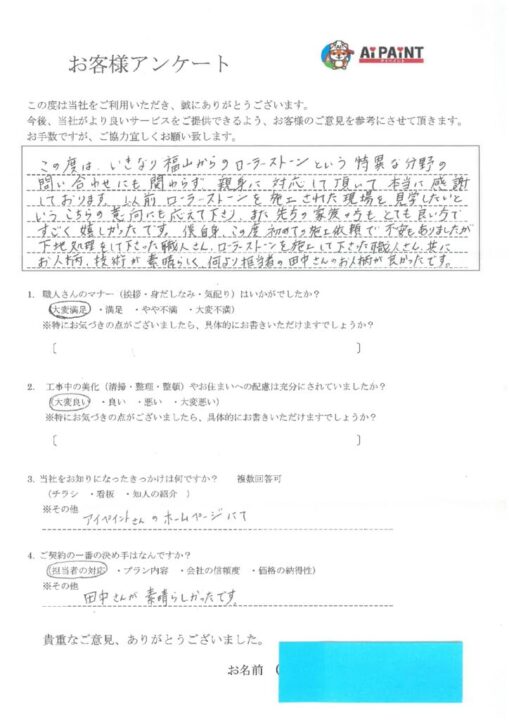 お客様アンケート
AiPAiNT
この度は当社をご利用いただき、誠にありがとうございます。
今後、当社がより良いサービスをご提供できるよう、お客様のご意見を参考にさせて頂きます。
お手数ですが、ご協力宜しくお願い致します。
この度は、いきなり福山からのローラーストーンという特異な分野の
問い合わせにも関わらず、親身に対応して頂いて本当に感謝
しております。以前、ローラーストーンを施工された現場を見学したいと
いうこちらの意向にも応えて下さり、また先方の家族の方もとても良い方で
すごく嬉しかったです。僕自身、この度初めての施工依頼で不安もありましたが
下地処理をして下さった職人さん、ローラーストーンを施工して下さった職人さん、共に
お人柄、技術が素晴らしく、何より担当者の田中さんのお人柄が良かったです。
1. 職人さんのマナー（挨拶・身だしなみ・気配り）はいかがでしたか？
（大変満足 ・満足 ・やや不満 ・大変不満）
※特にお気づきの点がございましたら、具体的にお書きいただけますでしょうか？
〔 〕
2. 工事中の美化（清掃・整理・整頓）やお住まいへの配慮は充分にされていましたか？
（大変良い ・良い ・悪い ・大変悪い）
※特にお気づきの点がございましたら、具体的にお書きいただけますでしょうか？
〔 〕
3. 当社をお知りになったきっかけは何ですか？ 複数回答可
（チラシ ・看板 ・知人の紹介 ）
※その他
アイペイントさんのホームページにて
4. ご契約の一番の決め手はなんですか？
（担当者の対応 ・プラン内容 ・会社の信頼度 ・価格の納得性）
※その他
田中さんが素晴らしかったです。
貴重なご意見、ありがとうございました。
お名前（